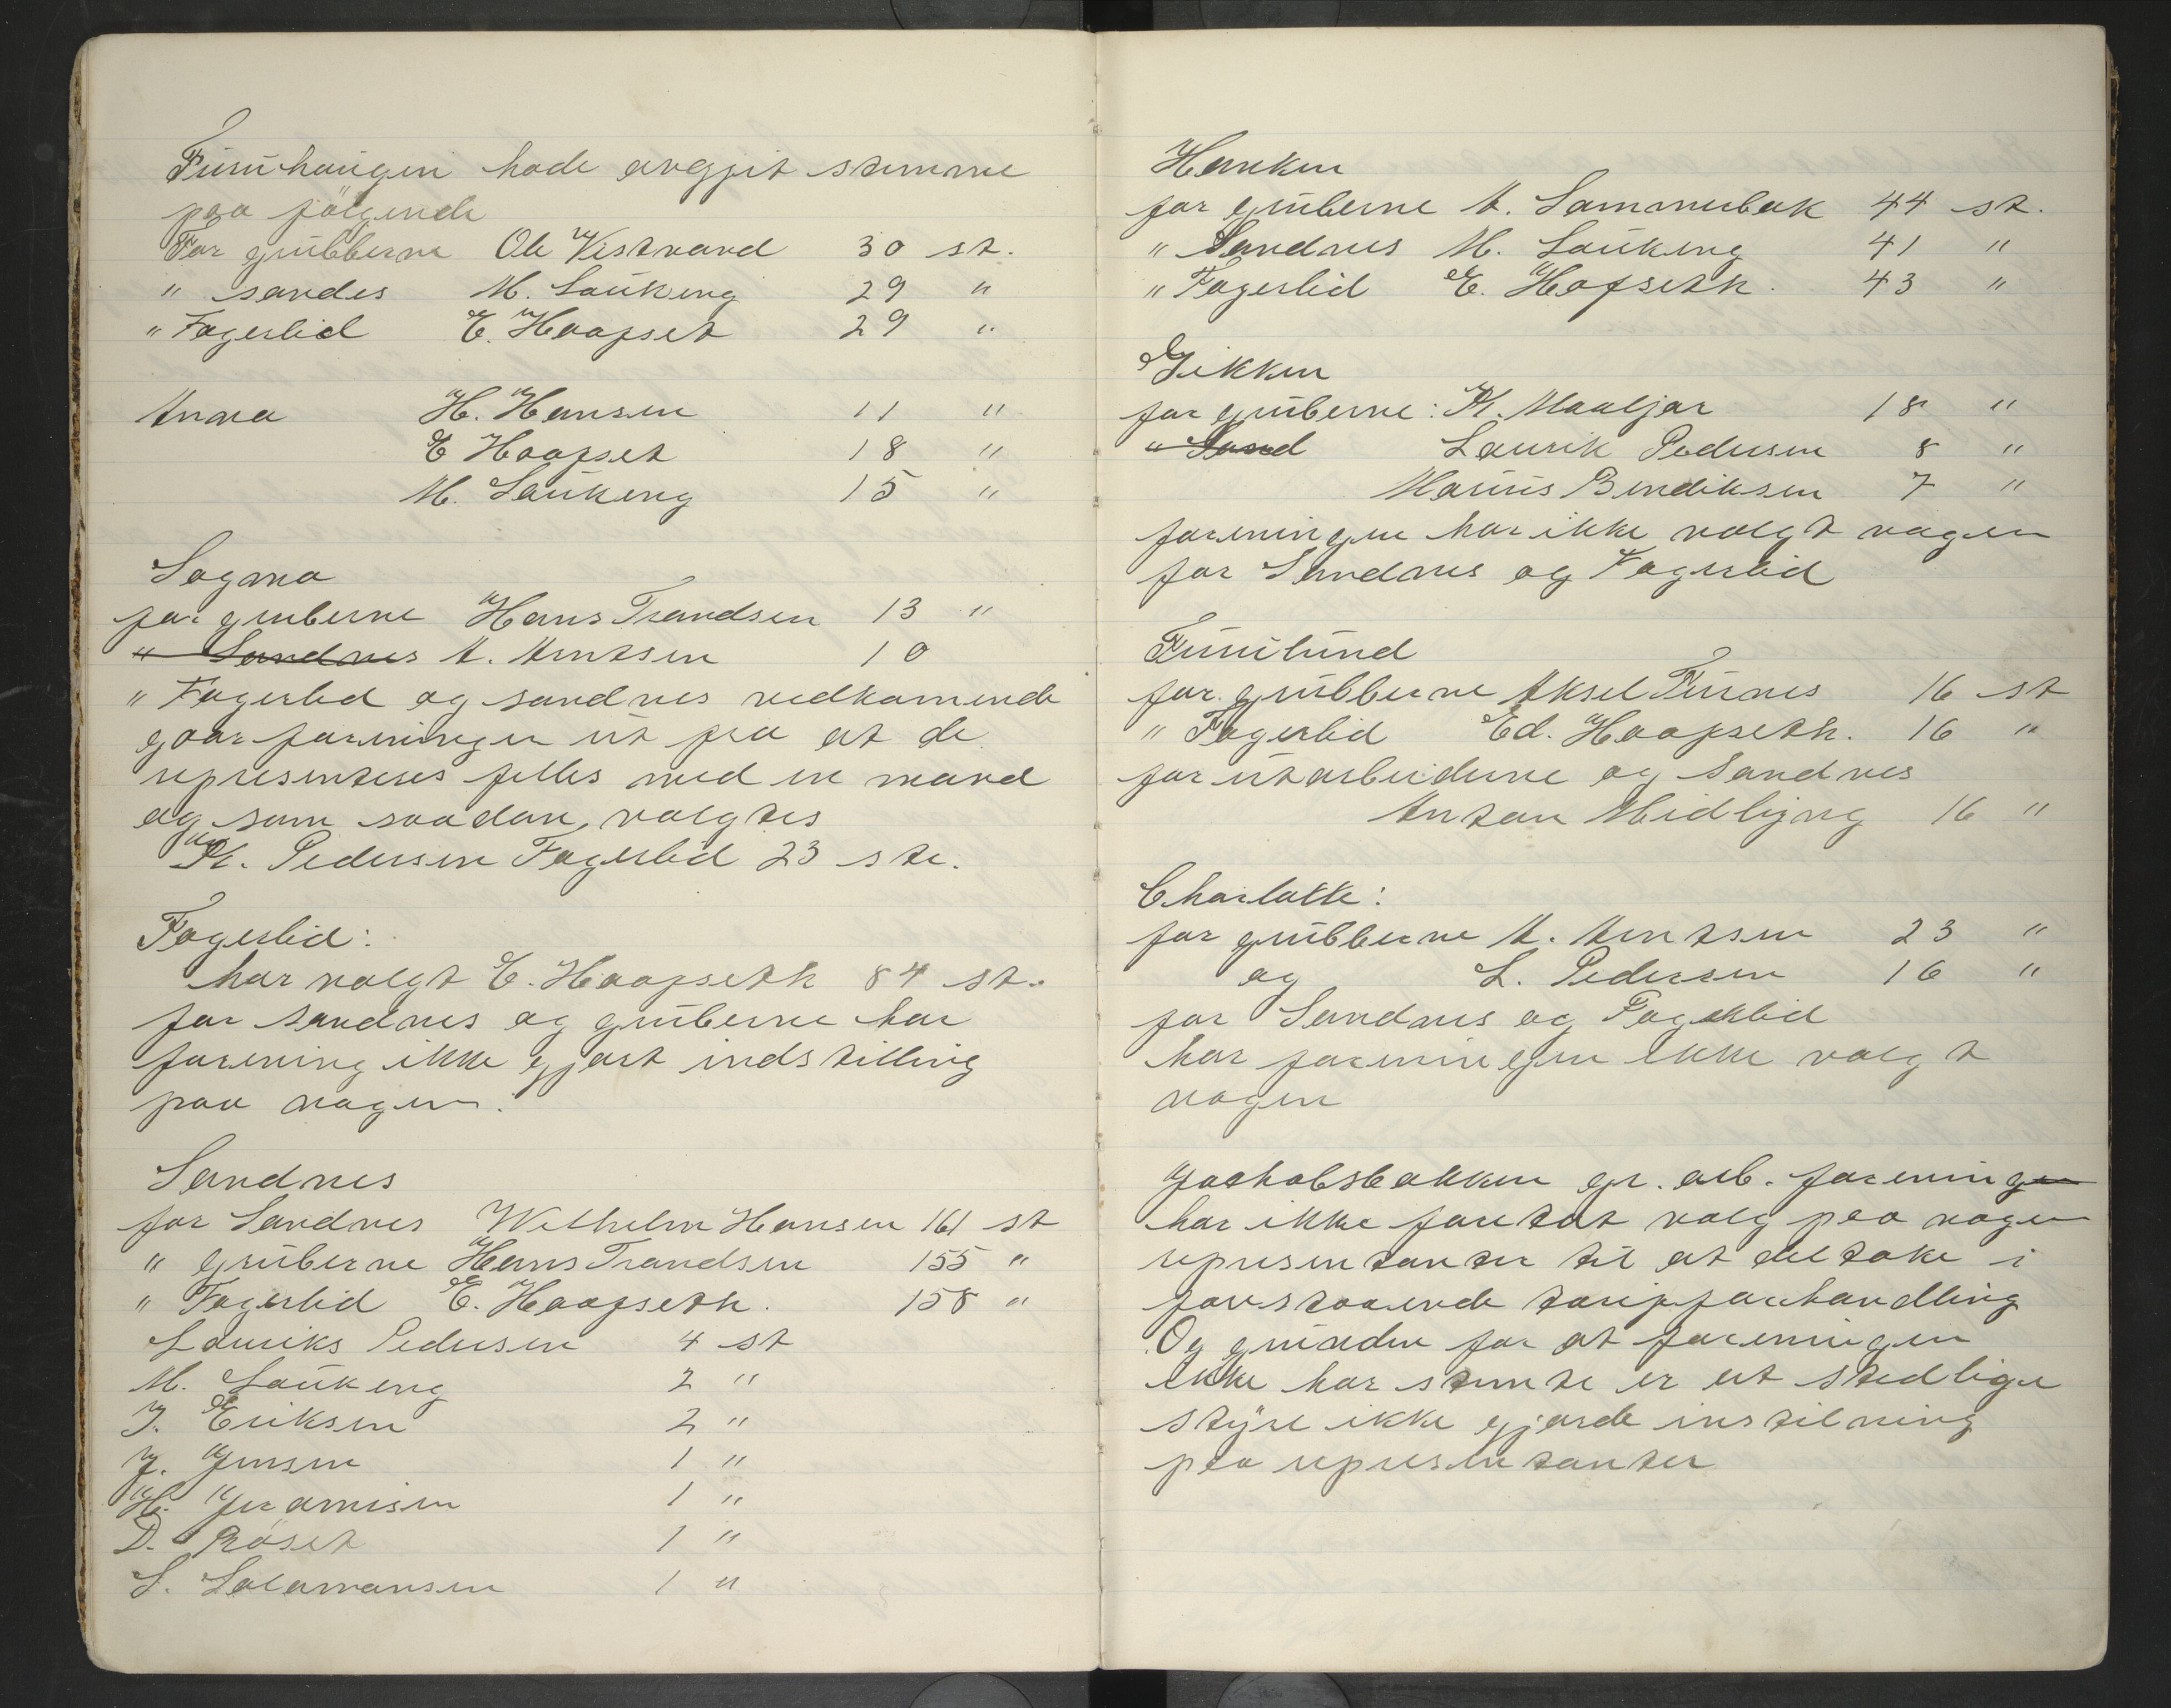 Furuhaugen hade avggit stemme
paa følgende
For grubberne Ole Vestvand 30 st.
" sandes M. Laukeng 29 "
" Fagerlid E. Haapset 29 "
Anna H. Hansen 11 "
E Haapset 18 "
M. Laukeng 15 "
Sagmo
for gruberne Hans Trandsen 13 "
" Sandnes A. Arntsen 10
" Fagerlid og sandnes vedkomende
gaar foreningen ut fra at de
represinteres felles med en mand
og som saadan valgtes
Kr. Pedersen Fagerlid 23 ste.
Fagerlid:
har valgt E. Haapseth 84 st.
for sandnes og gruberne har
forening ikke gjort indstilling
paa nogen.
Sandnes
for Sandnes Wilhelm Hansen 161 st
" Gruberne Hans Trandsen 155 "
" Fagerlid E. Haapseth. 158 "
Lauriks Pedersen 4 st
M. Laukeng 2 "
J. Eriksen 2 "
J. Jensen 1 "
H. Jeramisen 1 "
D. Røset 1 "
S. Salamonsen 1 "
Hanken
for gruberne A. Sommerbak 44 st.
" Sandnes M. Laukeng 41 "
" Fagerlid E. Hafseth. 43 "
Gikken
for gruberne: K. Maaljor 18 "
" Sand Laurik Pedersen 8 "
Marius Bendiksen 7 "
foreningen har ikke valgt nogen
for Sandnes og Fagerlid
Furulund
for grubberne Aksel Furnes 16 st
" Fagerlid Ed. Haapseth. 16 "
for utarbeiderne og Sandnes
Anton Midbjerg 16 "
Charlotte:
for grubberne A. Arntsen 23 "
og L. Pedersen 16 "
for Sandnes og Fagerlid
har foreningen ikke valgt
nogen
Jachobsbakken gr. arb. forening
har ikke foretat valg paa nogen
representanter til at deltake i
forestaaende tarifforhandling
Og grunden for at foreningen
ikke har stemte er at stedlige
styre ikke gjorde instilning
paa representanter